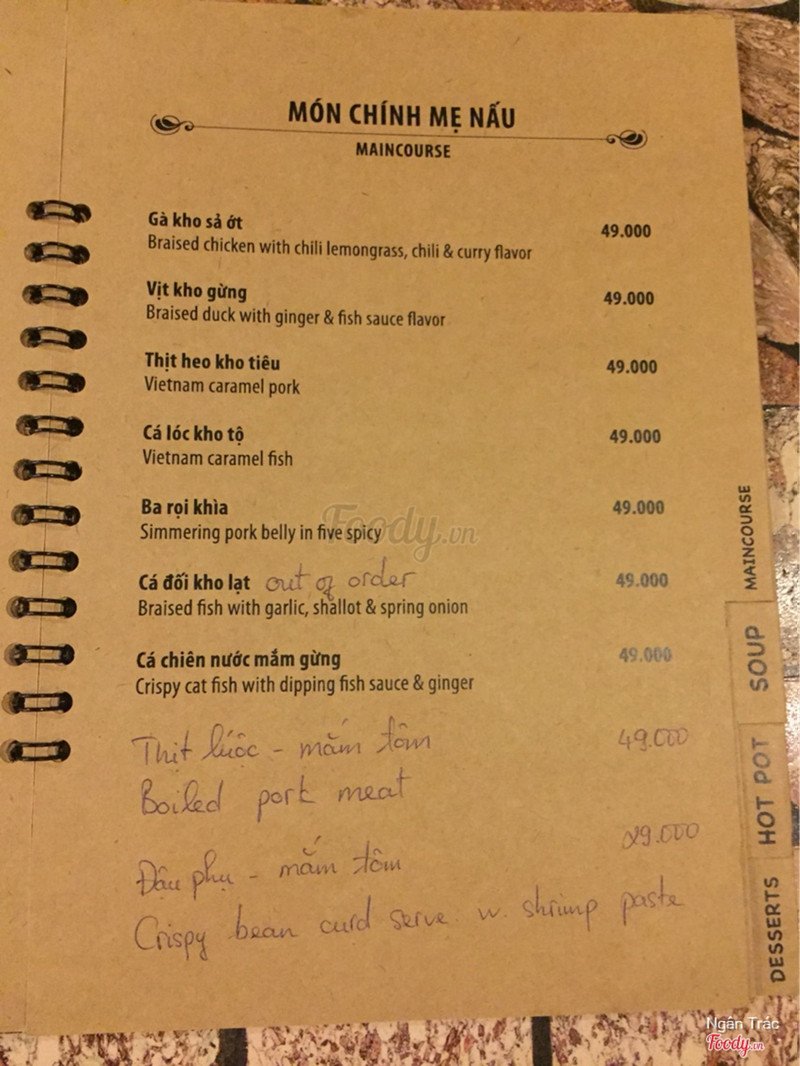 MÓN CHÍNH MẸ NẤU
MAINCOURSE
Gà kho sả ớt 49.000
Braised chicken with chili lemongrass, chili & curry flavor
Vịt kho gừng 49.000
Braised duck with ginger & fish sauce flavor
Thịt heo kho tiêu 49.000
Vietnam caramel pork
Cá lóc kho tộ 49.000
Vietnam caramel fish
Ba rọi khìa 49.000
Simmering pork belly in five spicy
Cá đối kho lạt out of order 49.000
Braised fish with garlic, shallot & spring onion
Cá chiên nước mắm gừng 49.000
Crispy cat fish with dipping fish sauce & ginger
Thịt luộc - mắm tôm 49.000
Boiled pork meat
Đậu phụ - mắm tôm 29.000
Crispy bean curd serve w. shrimp paste
MAINCOURSE
SOUP
HOT POT
DESSERTS
Foody.vn
Ngân Trác
Foody.vn